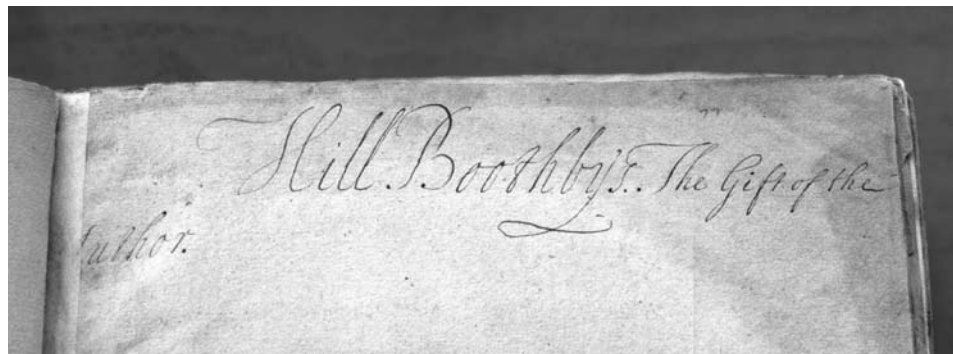 Hill Boothby's. The Gift of the
Author.